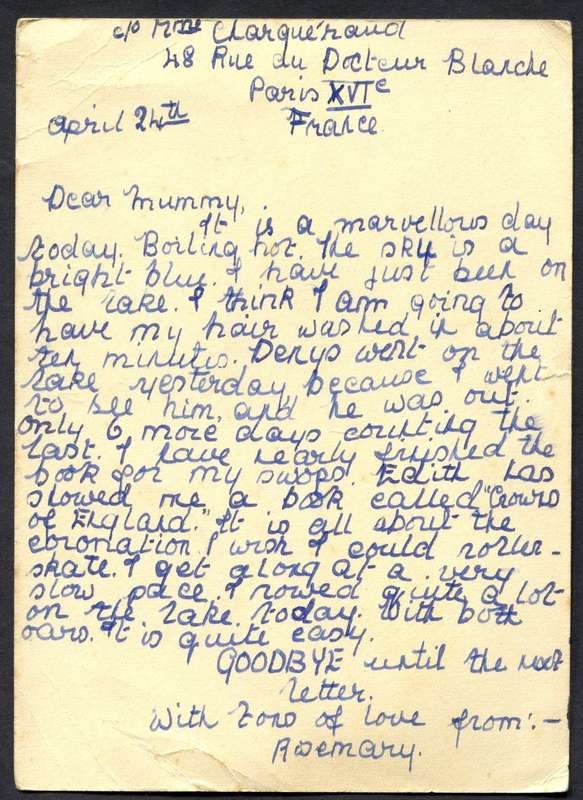 c/o Mme Charquéraud
48 Rue du Docteur Blanche
Paris XVIe
April 24th France
Dear Mummy,
It is a marvellous day
today. Boiling hot. The sky is a
bright blue. I have just been on
the lake. I think I am going to
have my hair washed in about
ten minutes. Denys went on the
lake yesterday, because I went
to see him, and he was out.
Only 6 more days counting the
last. I have nearly finished the
book for my swops. Edith has
slowed me a book called "Crowns
of England." It is all about the
coronation. I wish I could roller-
skate. I get along at a very
slow pace. I rowed quite a lot
on the lake today. With both
oars. It is quite easy.
GOODBYE until the next
letter.
With tons of love from:-
Rosemary.